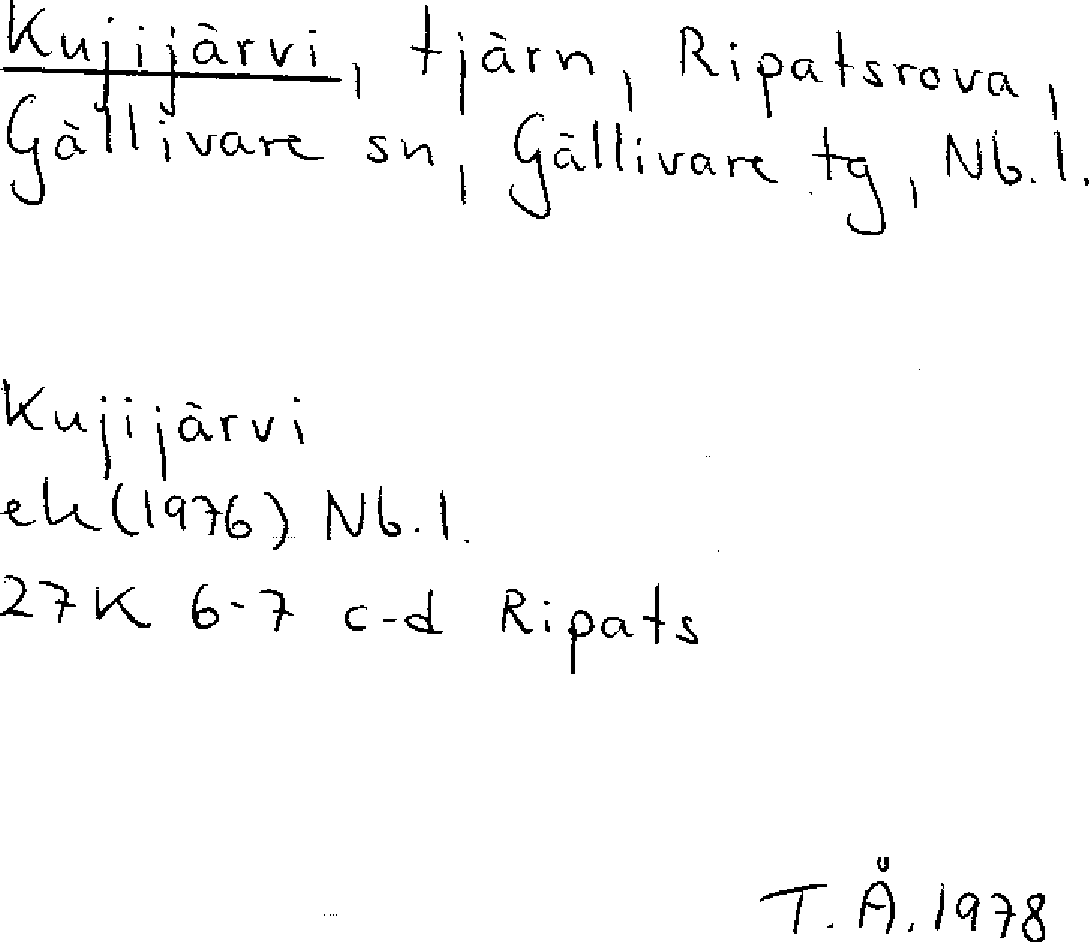 Kujijärvi, tjärn, Ripatsrova,
Gällivare sn, Gällivare tg, Nb. l.
Kujijärvi
ek (1976) Nb. l.
27K 6-7 c-d Ripats
T. Å. 1978